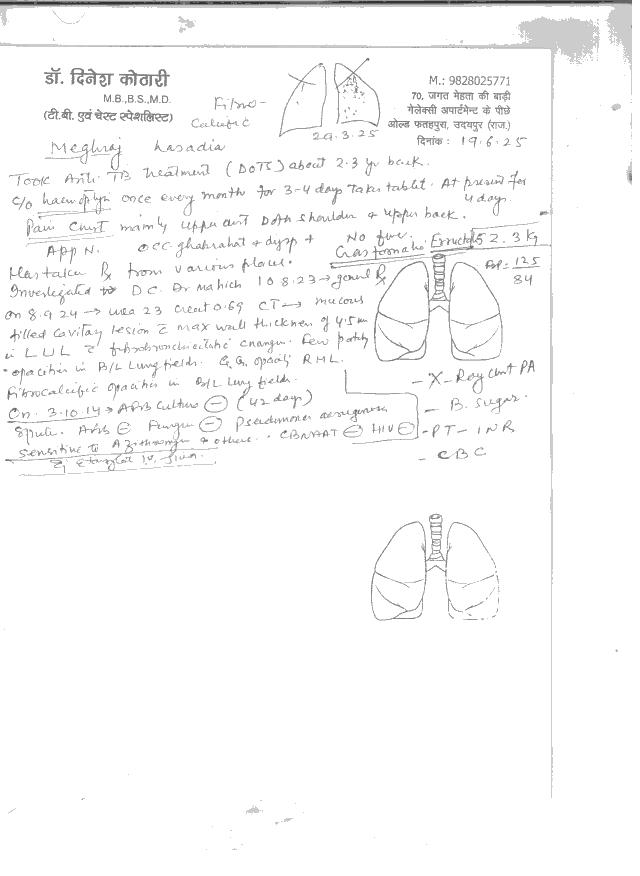 डॉ. दिनेश कोठारी
M.B.,B.S.,M.D.
(टी.बी. एवं चेस्ट स्पेशलिस्ट)
Fibro-
Calcific
29.3.25
M.: 9828025771
70, जगत मेहता की बाड़ी
गेलेक्सी अपार्टमेन्ट के पीछे
ओल्ड फतहपुरा, उदयपुर (राज.)
दिनांक : 19.6.25
Meghraj Lasadia
Took Anti TB Treatment (DOTS) about 2.3 yr back.
C/o haemoptysis once every month for 3-4 days Takes tablet. At present for
4 days.
Pain Chest mainly upper chest Both shoulder & upper back.
App N. occ ghabrahat + dysp + No fever. 52.3 kg
Has taken Rx from various places. BP = 125
84
Investigated D.C. Dr 10.8.23 →
On 8.9.24 → urea 23 creat 0.69 CT → mucous
filled cavitary lesion c max wall thickness of 4.5 mm
in L U L c fibrobronchiectatic changes. Few patchy
opacities in B/L Lung fields. G.G. opacity RML.
Fibrocalcific opacities in B/L Lung fields.
On. 3.10.14 → AFB Culture (-) (42 days)
AFB (-) Fungus (-) Pseudomonas aeruginosa
sensitive to & others. CBNAAT (-) HIV (-)
- X-Ray Chest PA
- B. Sugar.
- PT - INR
- CBC